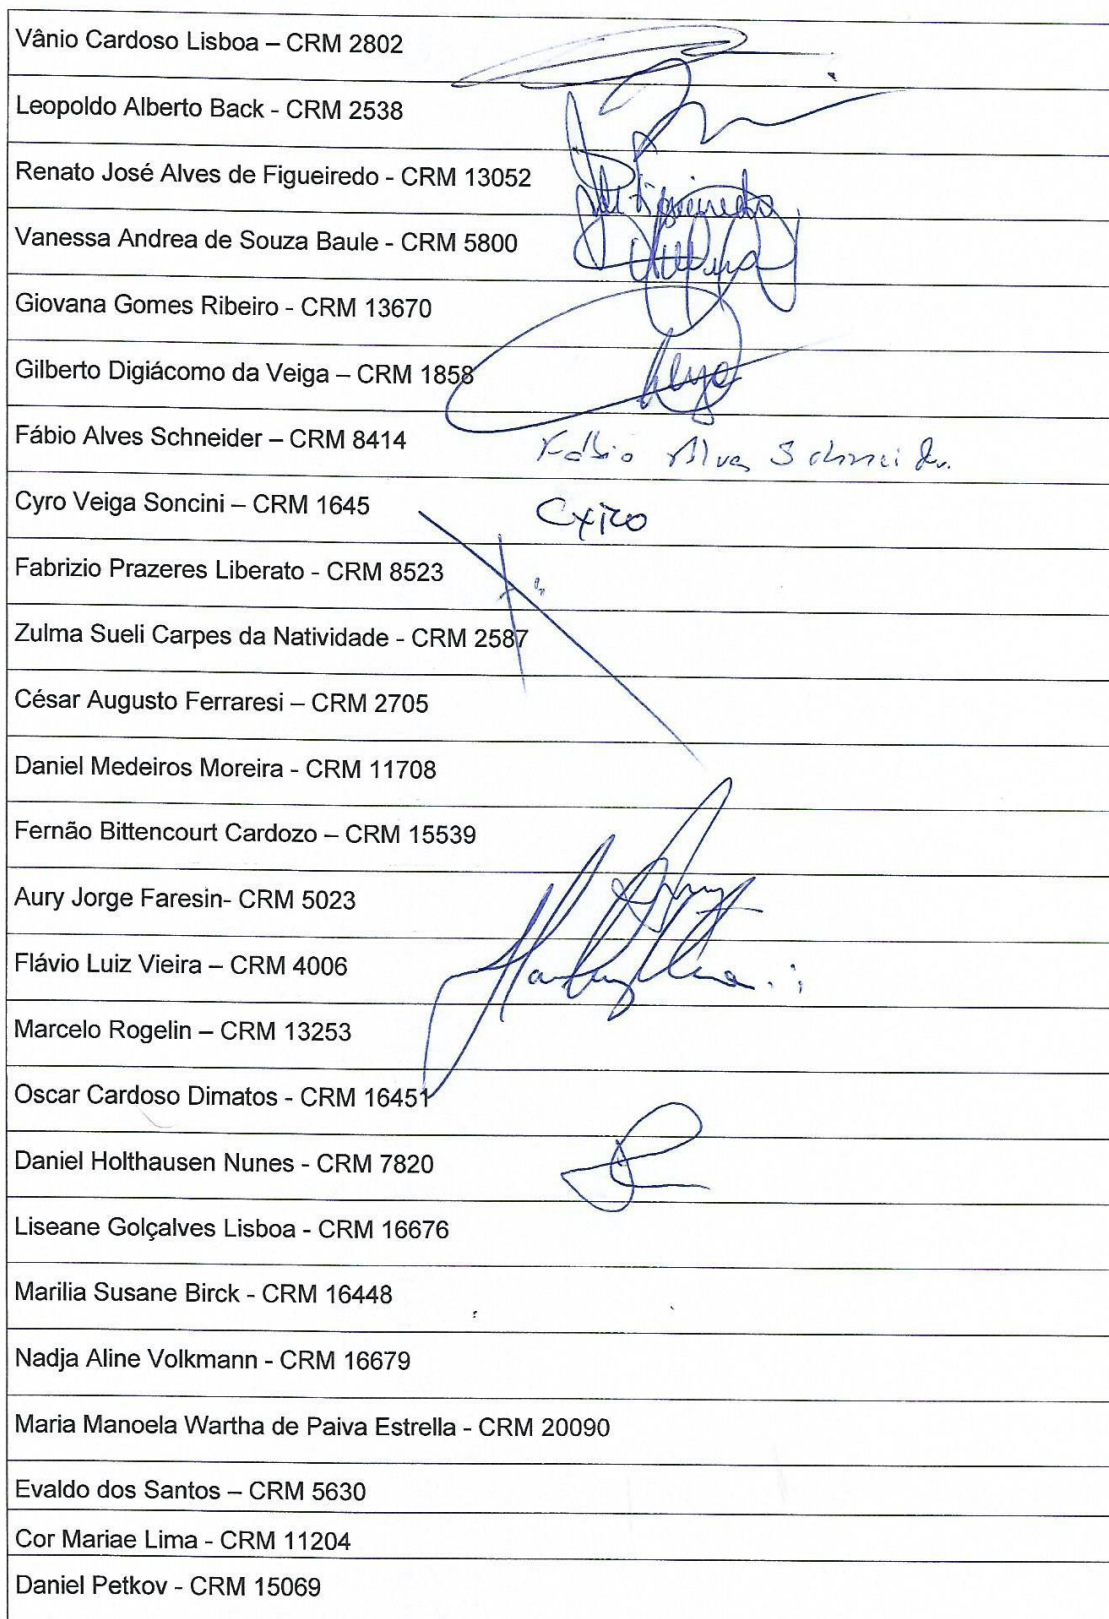 Vânio Cardoso Lisboa – CRM 2802
Leopoldo Alberto Back - CRM 2538
Renato José Alves de Figueiredo - CRM 13052
Vanessa Andrea de Souza Baule - CRM 5800
Giovana Gomes Ribeiro - CRM 13670
Gilberto Digiácomo da Veiga – CRM 1858
Fábio Alves Schneider – CRM 8414 Fábio Alves Schneider
Cyro Veiga Soncini – CRM 1645
Fabrizio Prazeres Liberato - CRM 8523
Zulma Sueli Carpes da Natividade - CRM 2587
César Augusto Ferraresi – CRM 2705
Daniel Medeiros Moreira - CRM 11708
Fernão Bittencourt Cardozo – CRM 15539
Aury Jorge Faresin- CRM 5023
Flávio Luiz Vieira – CRM 4006
Marcelo Rogelin – CRM 13253
Oscar Cardoso Dimatos - CRM 16451
Daniel Holthausen Nunes - CRM 7820
Liseane Golçalves Lisboa - CRM 16676
Marilia Susane Birck - CRM 16448
Nadja Aline Volkmann - CRM 16679
Maria Manoela Wartha de Paiva Estrella - CRM 20090
Evaldo dos Santos – CRM 5630
Cor Mariae Lima - CRM 11204
Daniel Petkov - CRM 15069